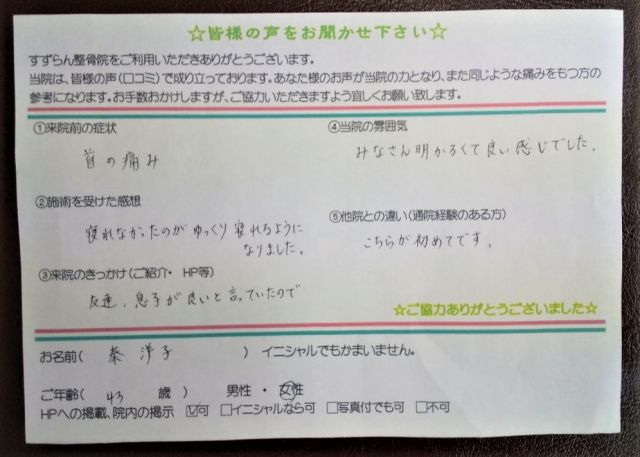 ☆皆様の声をお聞かせ下さい☆
すずらん整骨院をご利用いただきありがとうございます。
当院は、皆様の声(口コミ)で成り立っております。あなた様のお声が当院の力となり、また同じような痛みをもつ方の
参考になります。お手数おかけしますが、ご協力いただきますよう宜しくお願い致します。
①来院前の症状
首の痛み
②施術を受けた感想
寝れなかったのがゆっくり寝れるように
なりました。
③来院のきっかけ(ご紹介・HP等)
友達、息子が良いと言っていたので
④当院の雰囲気
みなさん明かるくて良い感じでした。
⑤他院との違い(通院経験のある方)
こちらが初めてです。
☆ご協力ありがとうございました☆
お名前( 秦 洋子 ) イニシャルでもかまいません。
ご年齢( 43 歳 ) 男性 ・ 女性
HPへの掲載、院内の掲示 ☑可 □イニシャルなら可 □写真付でも可 □不可